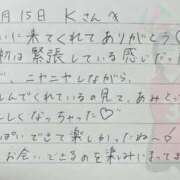 月15日 Kさんへ
いに来てくれてありがとう♡
初は緊張している感じだっ
、ニヤニヤしながら、
しんでくれているの見て、あみとっ
しくなっちゃった♡
ぱいできて楽しかったね〜♪
お会いできるのを楽しみにってま